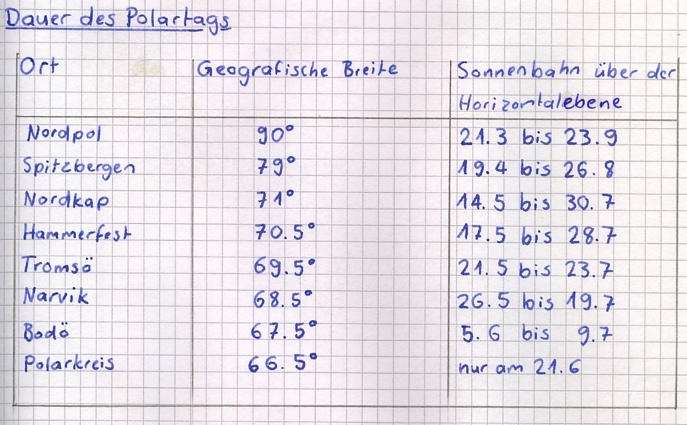 Dauer des Polartags
Ort Geografische Breite Sonnenbahn über der
Horizontalebene
Nordpol 90° 21.3 bis 23.9
Spitzbergen 79° 19.4 bis 26.8
Nordkap 71° 14.5 bis 30.7
Hammerfest 70.5° 17.5 bis 28.7
Tromsö 69.5° 21.5 bis 23.7
Narvik 68.5° 26.5 bis 19.7
Bodö 67.5° 5.6 bis 9.7
Polarkreis 66.5° nur am 21.6